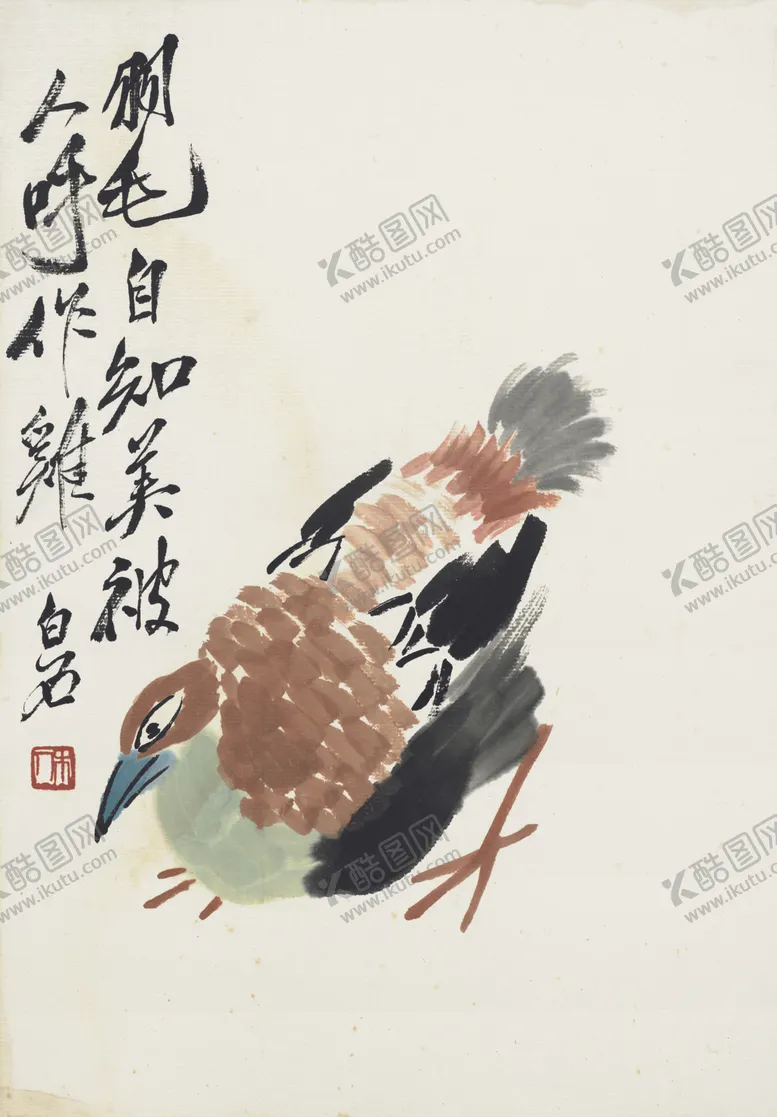 羽毛自知美被
人呼作雞
白石
木人
酷图网
www.ikutu.com
酷图网
www.ikutu.com
酷图网
www.ikutu.com
酷图网
www.ikutu.com
酷图网
www.ikutu.com
酷图网
www.ikutu.com
酷图网
www.ikutu.com
酷图网
www.ikutu.com
酷图网
www.ikutu.com